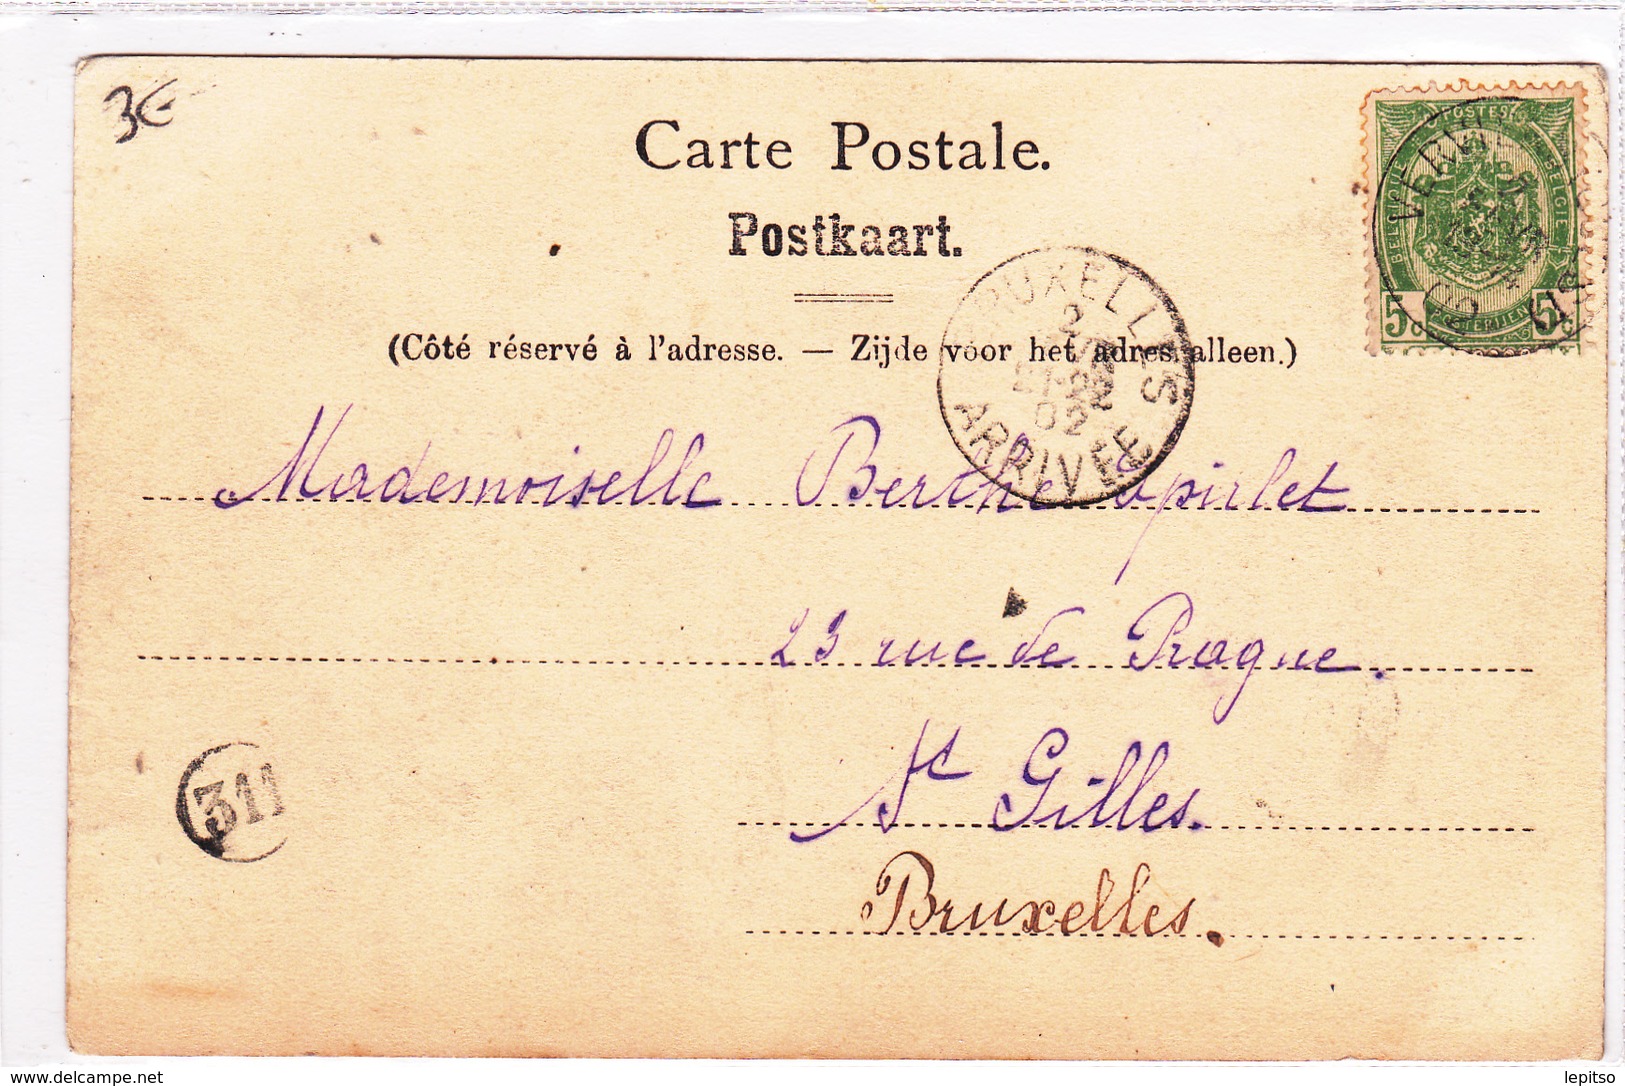 3€
Carte Postale.
Postkaart.
(Côté réservé à l'adresse. — Zijde voor het adres alleen.)
POSTES
BELGIQUE
BELGIE
5c
5c
BRUXELLES
2
02
ARRIVÉE
Mademoiselle Berthe Spirlet
23 rue de Prague.
St Gilles.
311
Bruxelles.
www.delcampe.net
lepitso